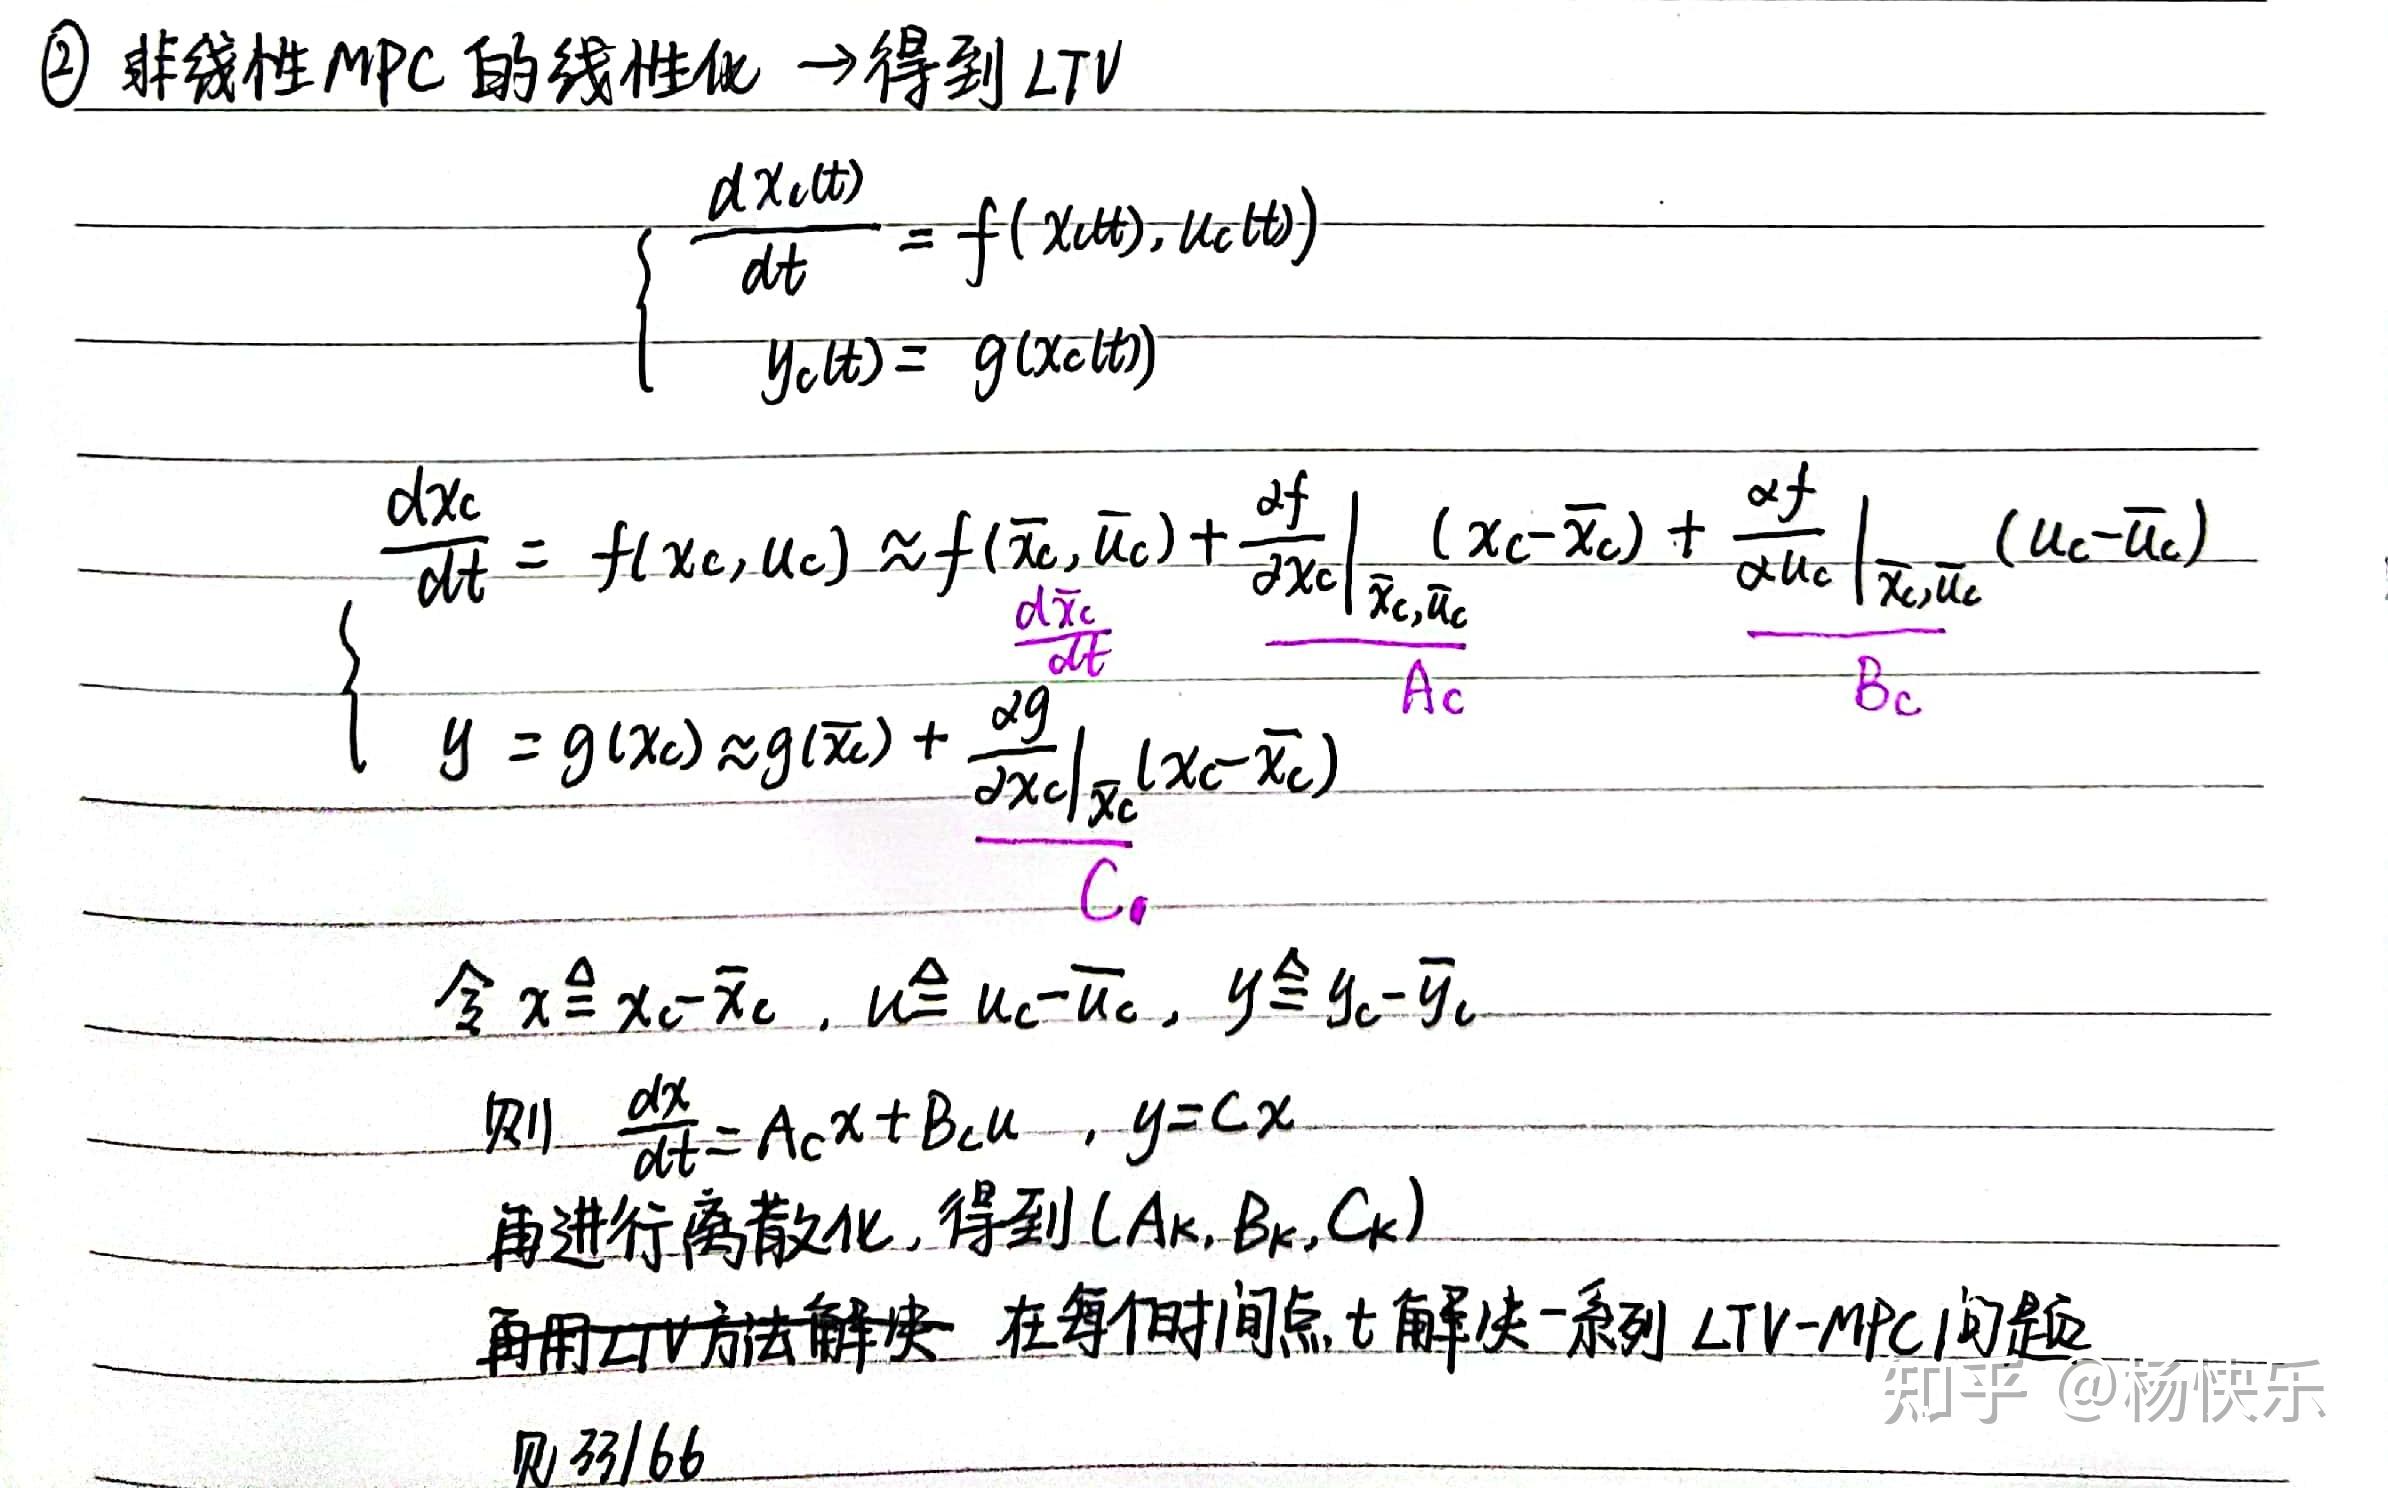 ② 非线性MPC的线性化 →得到LTV
dx_c(t)/dt = f(x_c(t), u_c(t))
y_c(t) = g(x_c(t))
dx_c/dt = f(x_c, u_c) ≈ f(x̄_c, ū_c) + ∂f/∂x_c|x̄_c, ū_c (x_c-x̄_c) + ∂f/∂u_c|x̄_c, ū_c (u_c-ū_c)
dx̄_c/dt A_c B_c
y = g(x_c) ≈ g(x̄_c) + ∂g/∂x_c|x̄_c (x_c-x̄_c)
C
令 x ≜ x_c-x̄_c, u ≜ u_c-ū_c, y ≜ y_c-ȳ_c
则 dx/dt = A_c x + B_c u, y = Cx
再进行离散化, 得到(A_K, B_K, C_K)
再用LTV方法解决 在每个时间点t解决一系列LTV-MPC问题
见33/66
知乎 @杨快乐